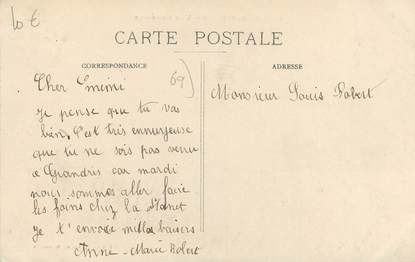 10 €
CARTE POSTALE
CORRESPONDANCE
ADRESSE
69)
Cher Mimi
Je pense que tu vas
bien, C'est très ennuyeuse
que tu ne sois pas venu
a Grandris car mardi
nous sommes aller faire
les foins chez la
Je t'envoie milles baisers
Anne-Marie Robert
Monsieur Louis Robert